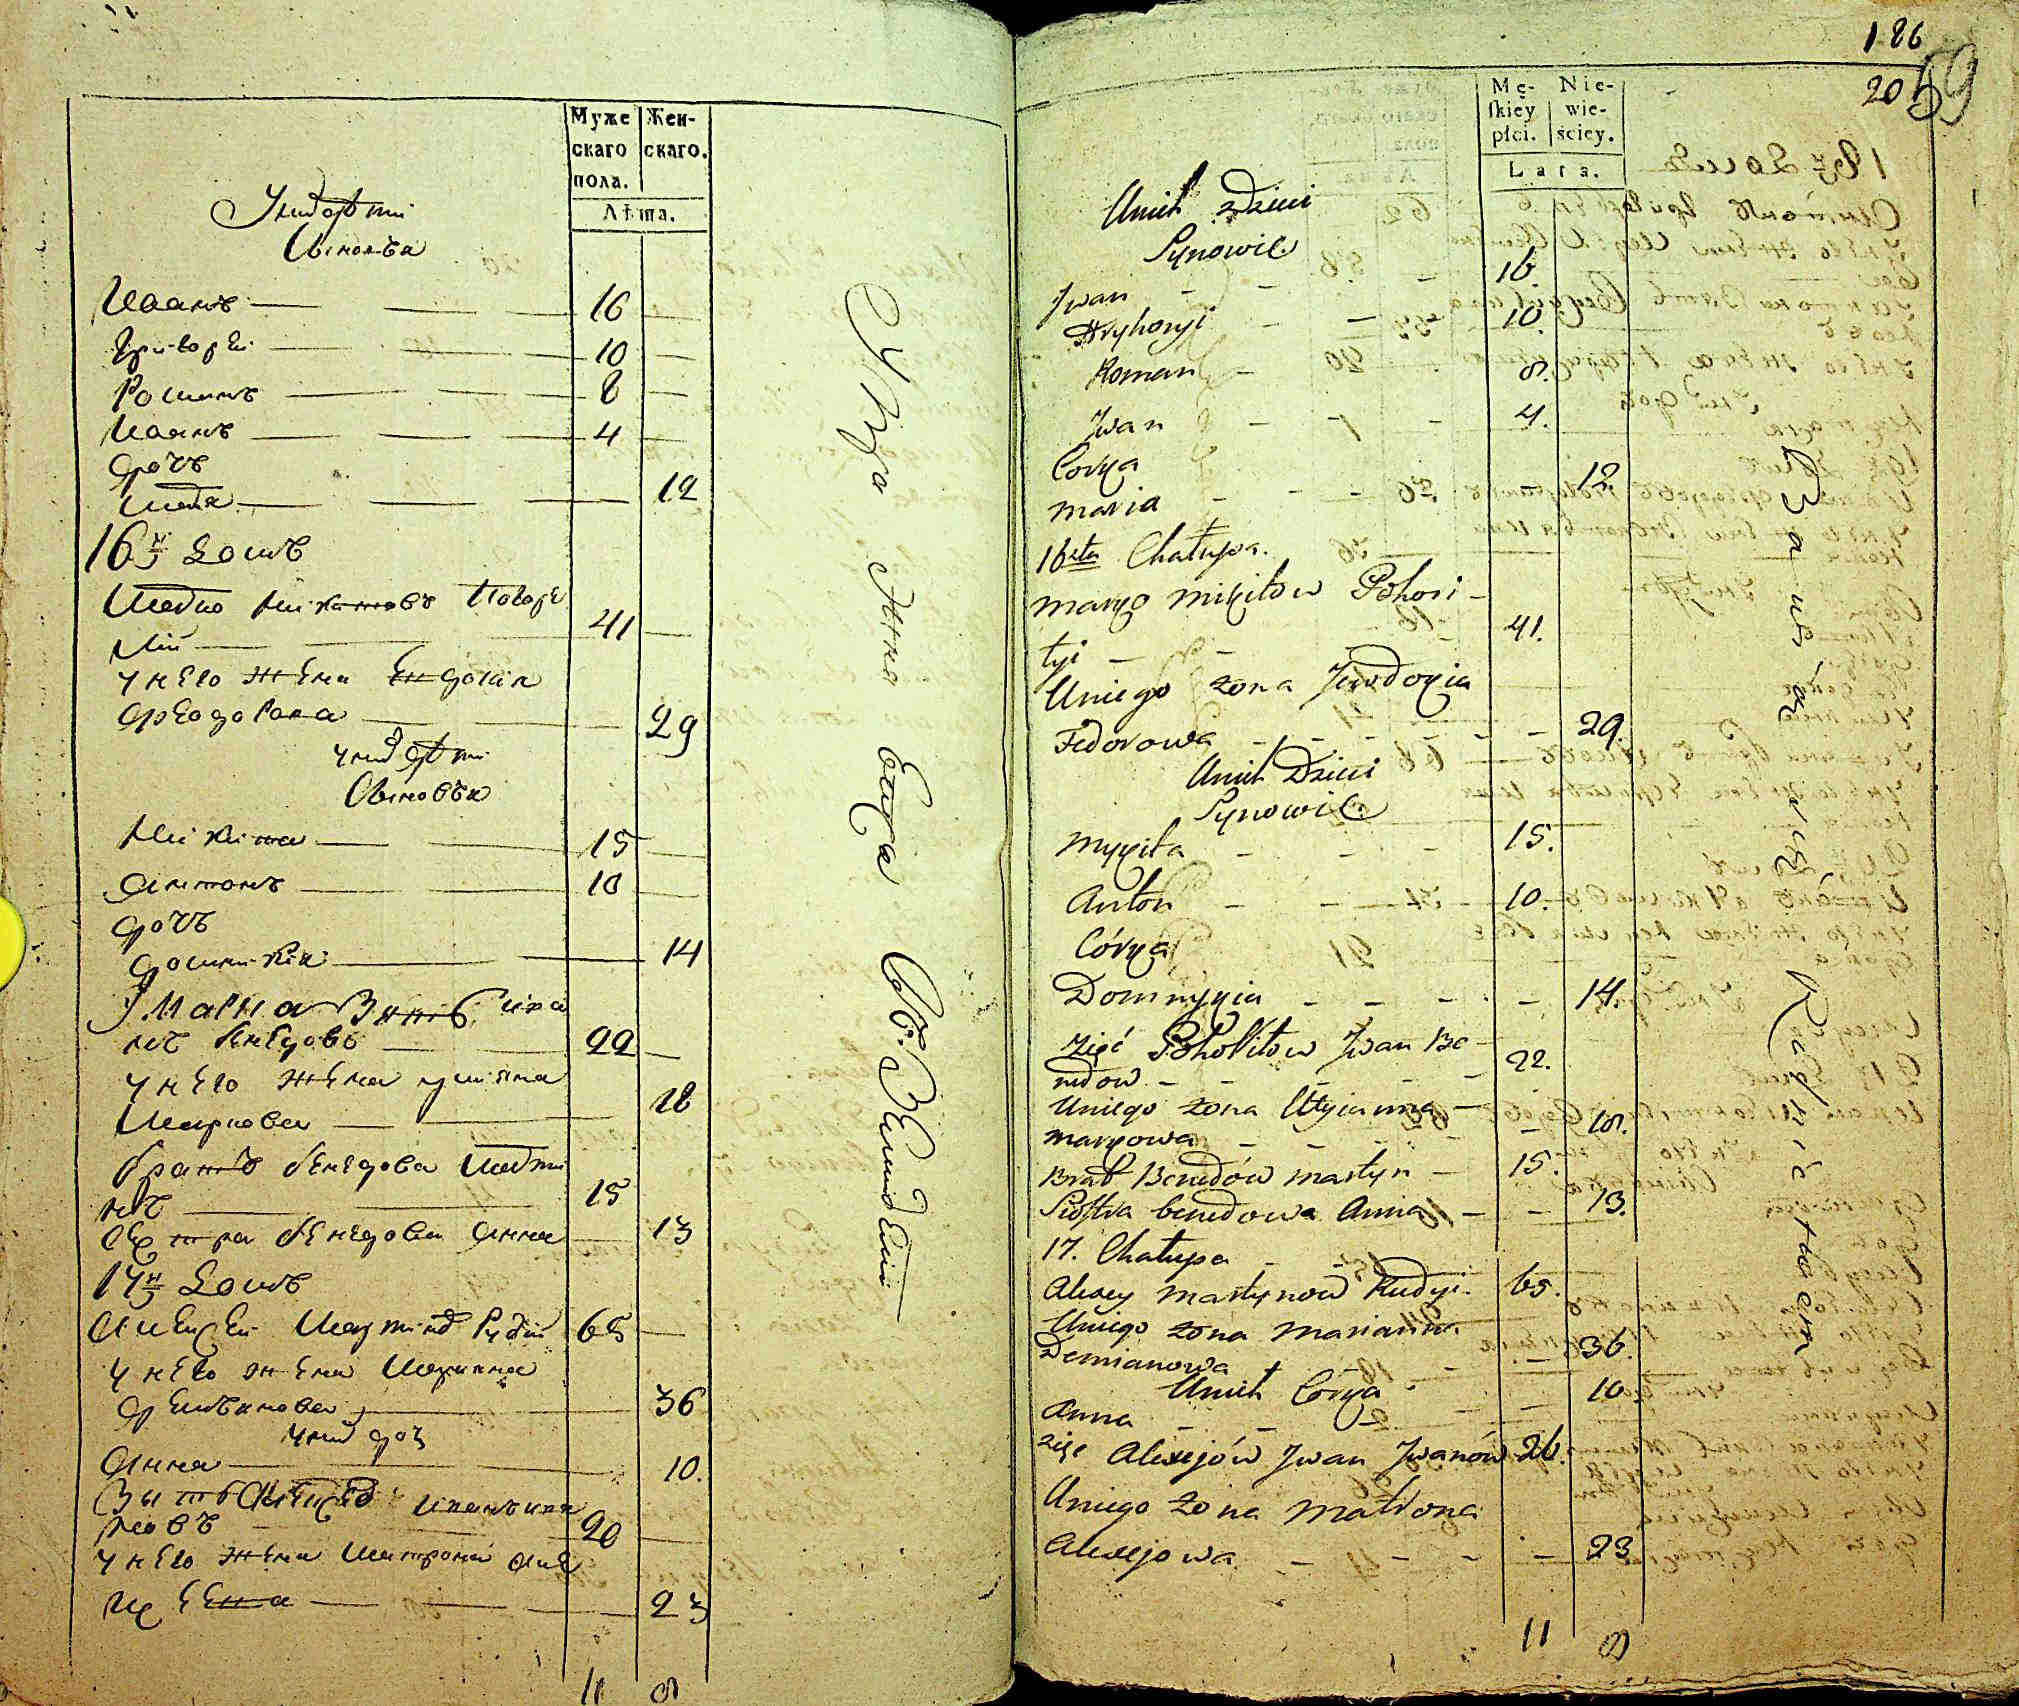 Муже Жен-
скаго скаго.
пола.
Лѣта.
У нихъ дѣти
Сыновья
Иванъ 16
Григорей 10
Романъ 8
Иванъ 4
дочь
Марья 12
16й Домъ
Марко Микитовъ Погоре
лій 41
у него жена Евдокія
Феодорова 29
у нихъ дѣти
Сыновья
Микита 15
Антонъ 10
дочь
Домникія 14
Зять Ива
нъ Бенедовъ 22
у него жена Уліяна
Маркова 18
братъ Бенедова Марти
нъ 15
сестра Бенедова Анна 13
17й Домъ
Алексей Мартиновъ Рудій 65
у него жена Марианна
Демьянова 36
у нихъ дочь
Анна 10.
Зять Алексеевъ Иванъ Ива
новъ 26
у него жена Матрона Але
ксеева 23
11 9
186
20 59
Mę- Nie-
skiey wie-
płci. ściey.
Lata.
Unich Dzieci
Synowie
Jwan 16
Hryhoryi 10.
Roman 8.
Jwan 4.
Corka
Maria 12.
16sta Chałupa.
Marko Mikitow Pohori-
łyi 41.
Uniego żona Jewdokia
Fedorowa 29.
Unich Dzieci
Synowie
Mykita 15.
Anton 10.
Córka
Domnykia 14.
Zięć Pohoriłow Jwan Be-
nedow 22.
Uniego żona Uliianna
Markowa 18.
Brat Benedów Martyn 15.
Siostra benedowa Anna 13.
17. Chałupa
Alexey Martynow Rudyi. 65.
Uniego żona Marianna
Demianowa 36.
Unich Córka
Anna 10.
Zięć Alexejów Jwan Jwanów 26.
Uniego żona Matrona
Alexejowa 23
11 9